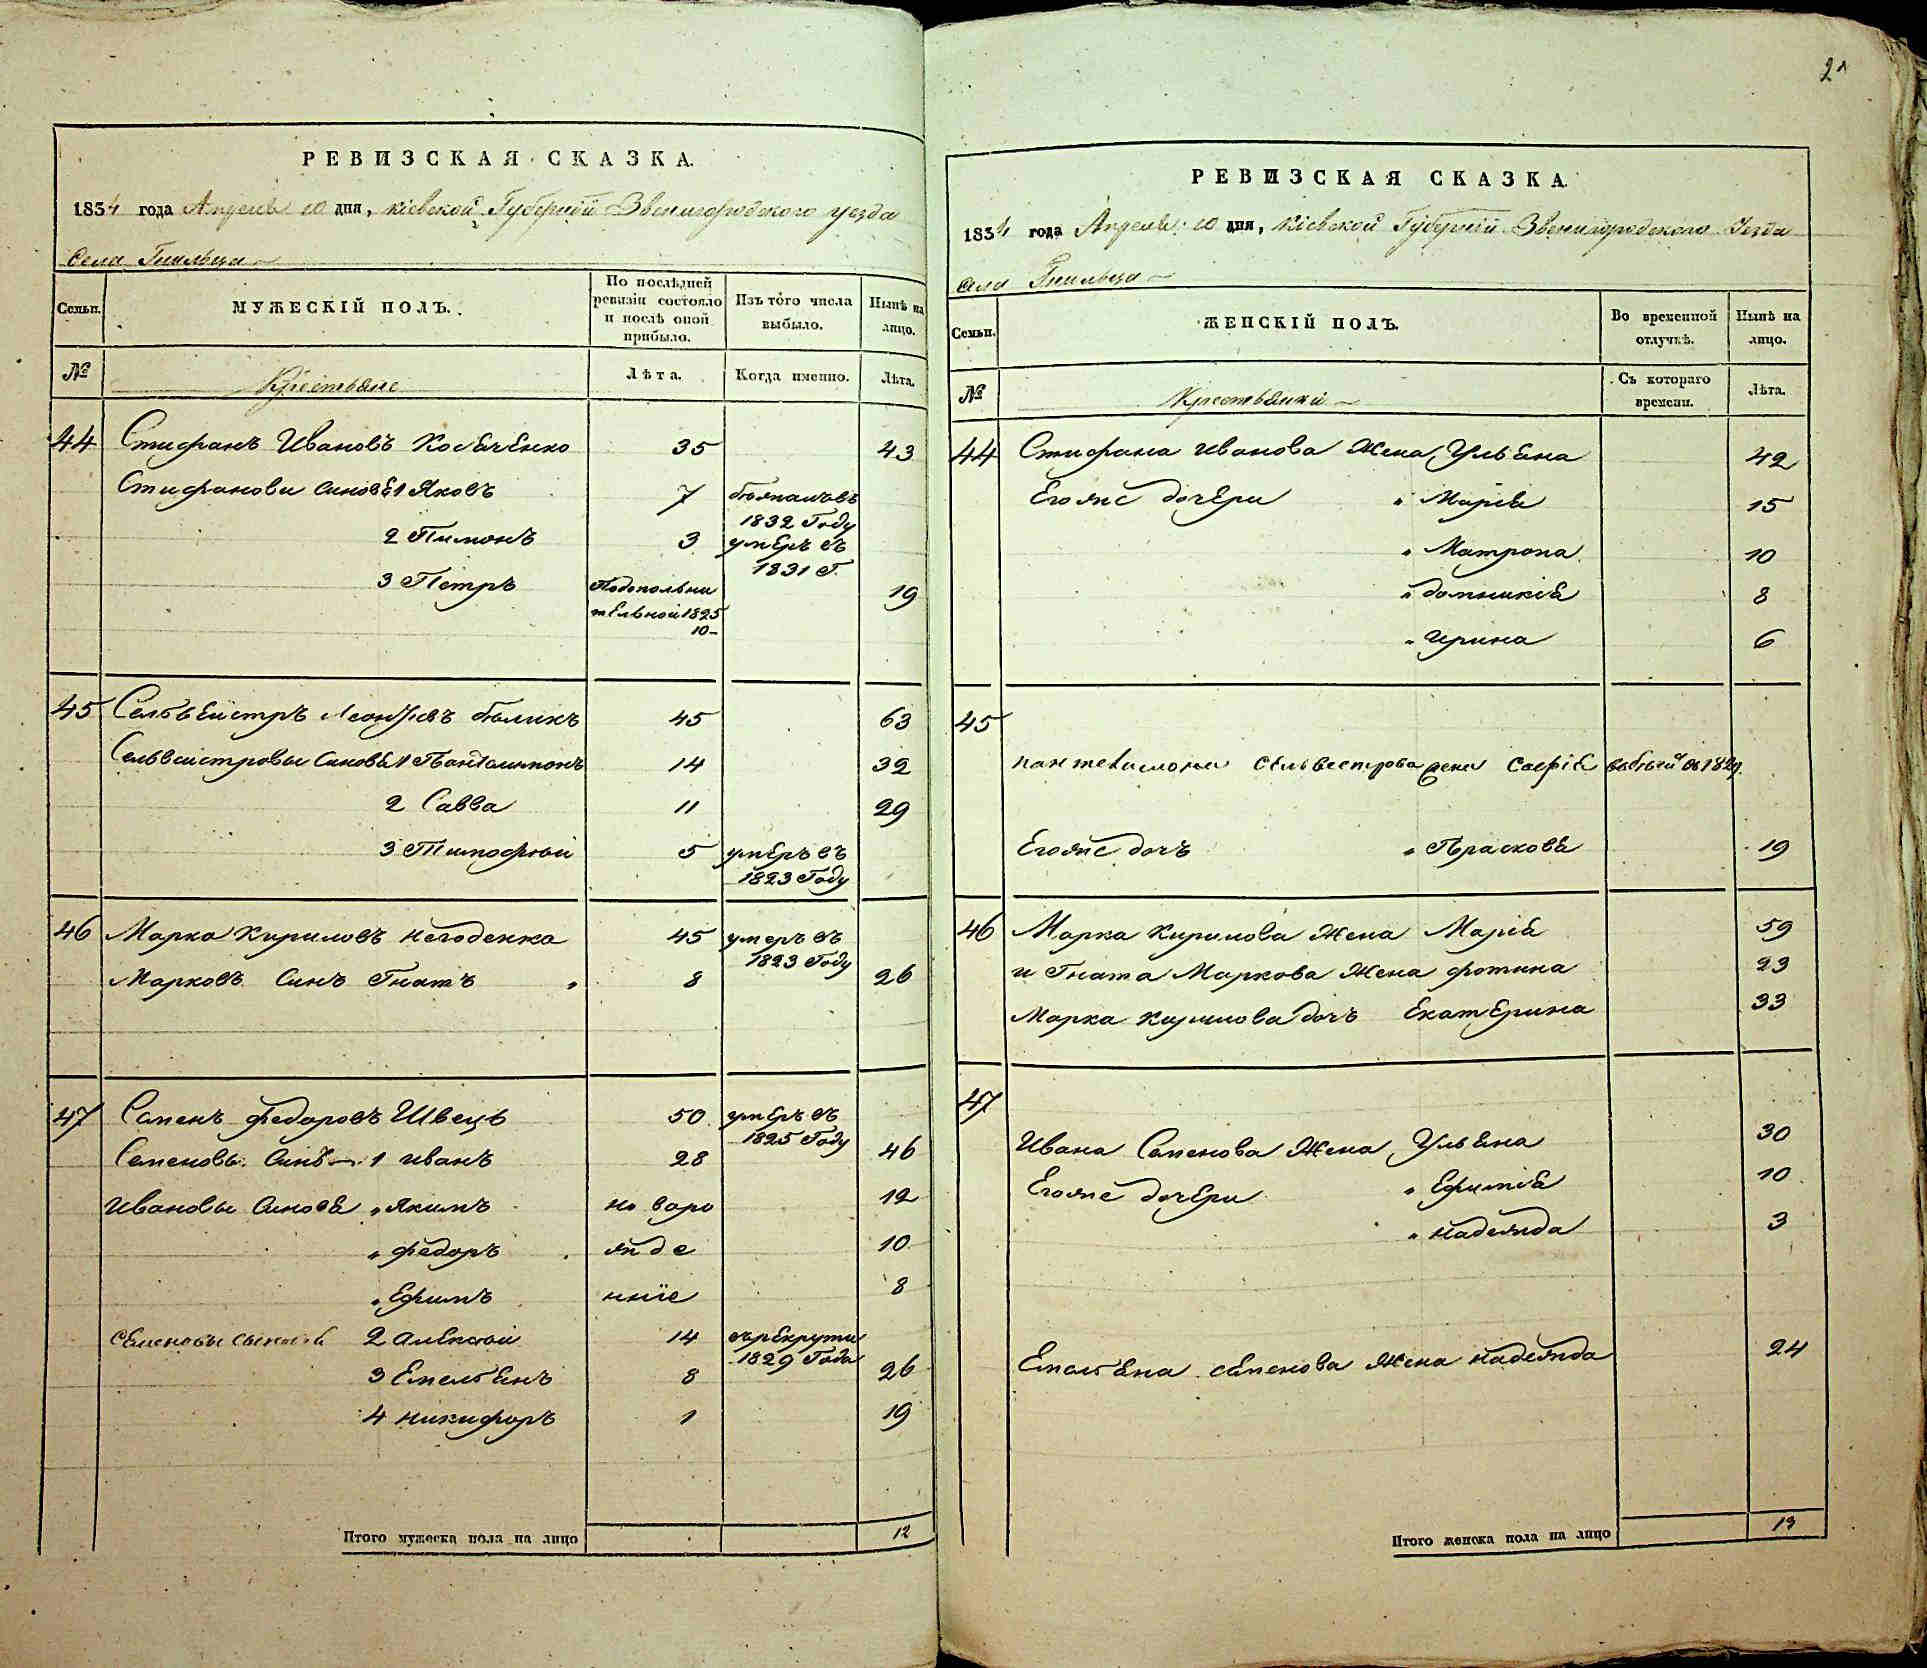 РЕВИЗСКАЯ СКАЗКА.
1834 года Апреля 10 дня, Кіевской Губерніи Звенигородского уезда
Села Гнильца
Семьи.
МУЖЕСКІЙ ПОЛЪ.
По послѣдней ревизіи состояло и послѣ оной прибыло.
Изъ того числа выбыло.
Нынѣ на лицо.
№
Крестьяне
Лѣта.
Когда именно.
Лѣта.
44 Стифанъ Ивановъ 35 43
Стифанови Синовѣ 1 Яковъ 7 1832 Году
2 Пимонъ 3 умеръ въ 1831 Г.
3 Петръ 1825 10 19
45 Сельвейстръ Леонтіевъ бѣликъ 45 63
Сельвейстровы Синовѣ 1 Пантелимонъ 14 32
2 Савва 11 29
3 Тимофѣй 5 умеръ въ 1823 Году
46 Марка Кириловъ Негоденка 45 умеръ въ 1823 Году
Марковъ Синъ Гнатъ 8 26
47 Семенъ Федоровъ Швецъ 50 умеръ въ 1825 Году
Семеновы Синѣ 1 Иванъ 28 46
Ивановы Синовѣ " Якимъ но воро 12
" Федоръ жде 10
" Ефимъ нніе 8
Семеновы сыновѣ 2 Алексѣй 14 врекруты 1829 Года
3 Емельѣнъ 8 26
4 Никифоръ 1 19
Итого мужеска пола на лицо 12
РЕВИЗСКАЯ СКАЗКА.
1834 года Апреля 10 дня, Кіевской Губерніи Звенигородского Уезда
села Гнильца
Семьи.
ЖЕНСКІЙ ПОЛЪ.
Во временной отлучкѣ.
Нынѣ на лицо.
№
Крестьянки
Съ котораго времени.
Лѣта.
44 Стифана Иванова Жена Ульѣна 42
Егояже дочери " Маріѣ 15
" Матрона 10
" домникіѣ 8
" Ирина 6
45
пантелимона Сельвестрова жена Софіѣ
Егояже дочъ " Парасковѣ 19
46 Марка Кирилова Жена Маріѣ 59
и Гната Маркова Жена фотина 23
Марка Кирилова дочъ Екатерина 33
47
Ивана Семенова Жена Ульѣна 30
Егояже дочери " Ефиміѣ 10
" надежда 3
Емельѣна семенова Жена надежда 24
Итого женска пола на лицо 13